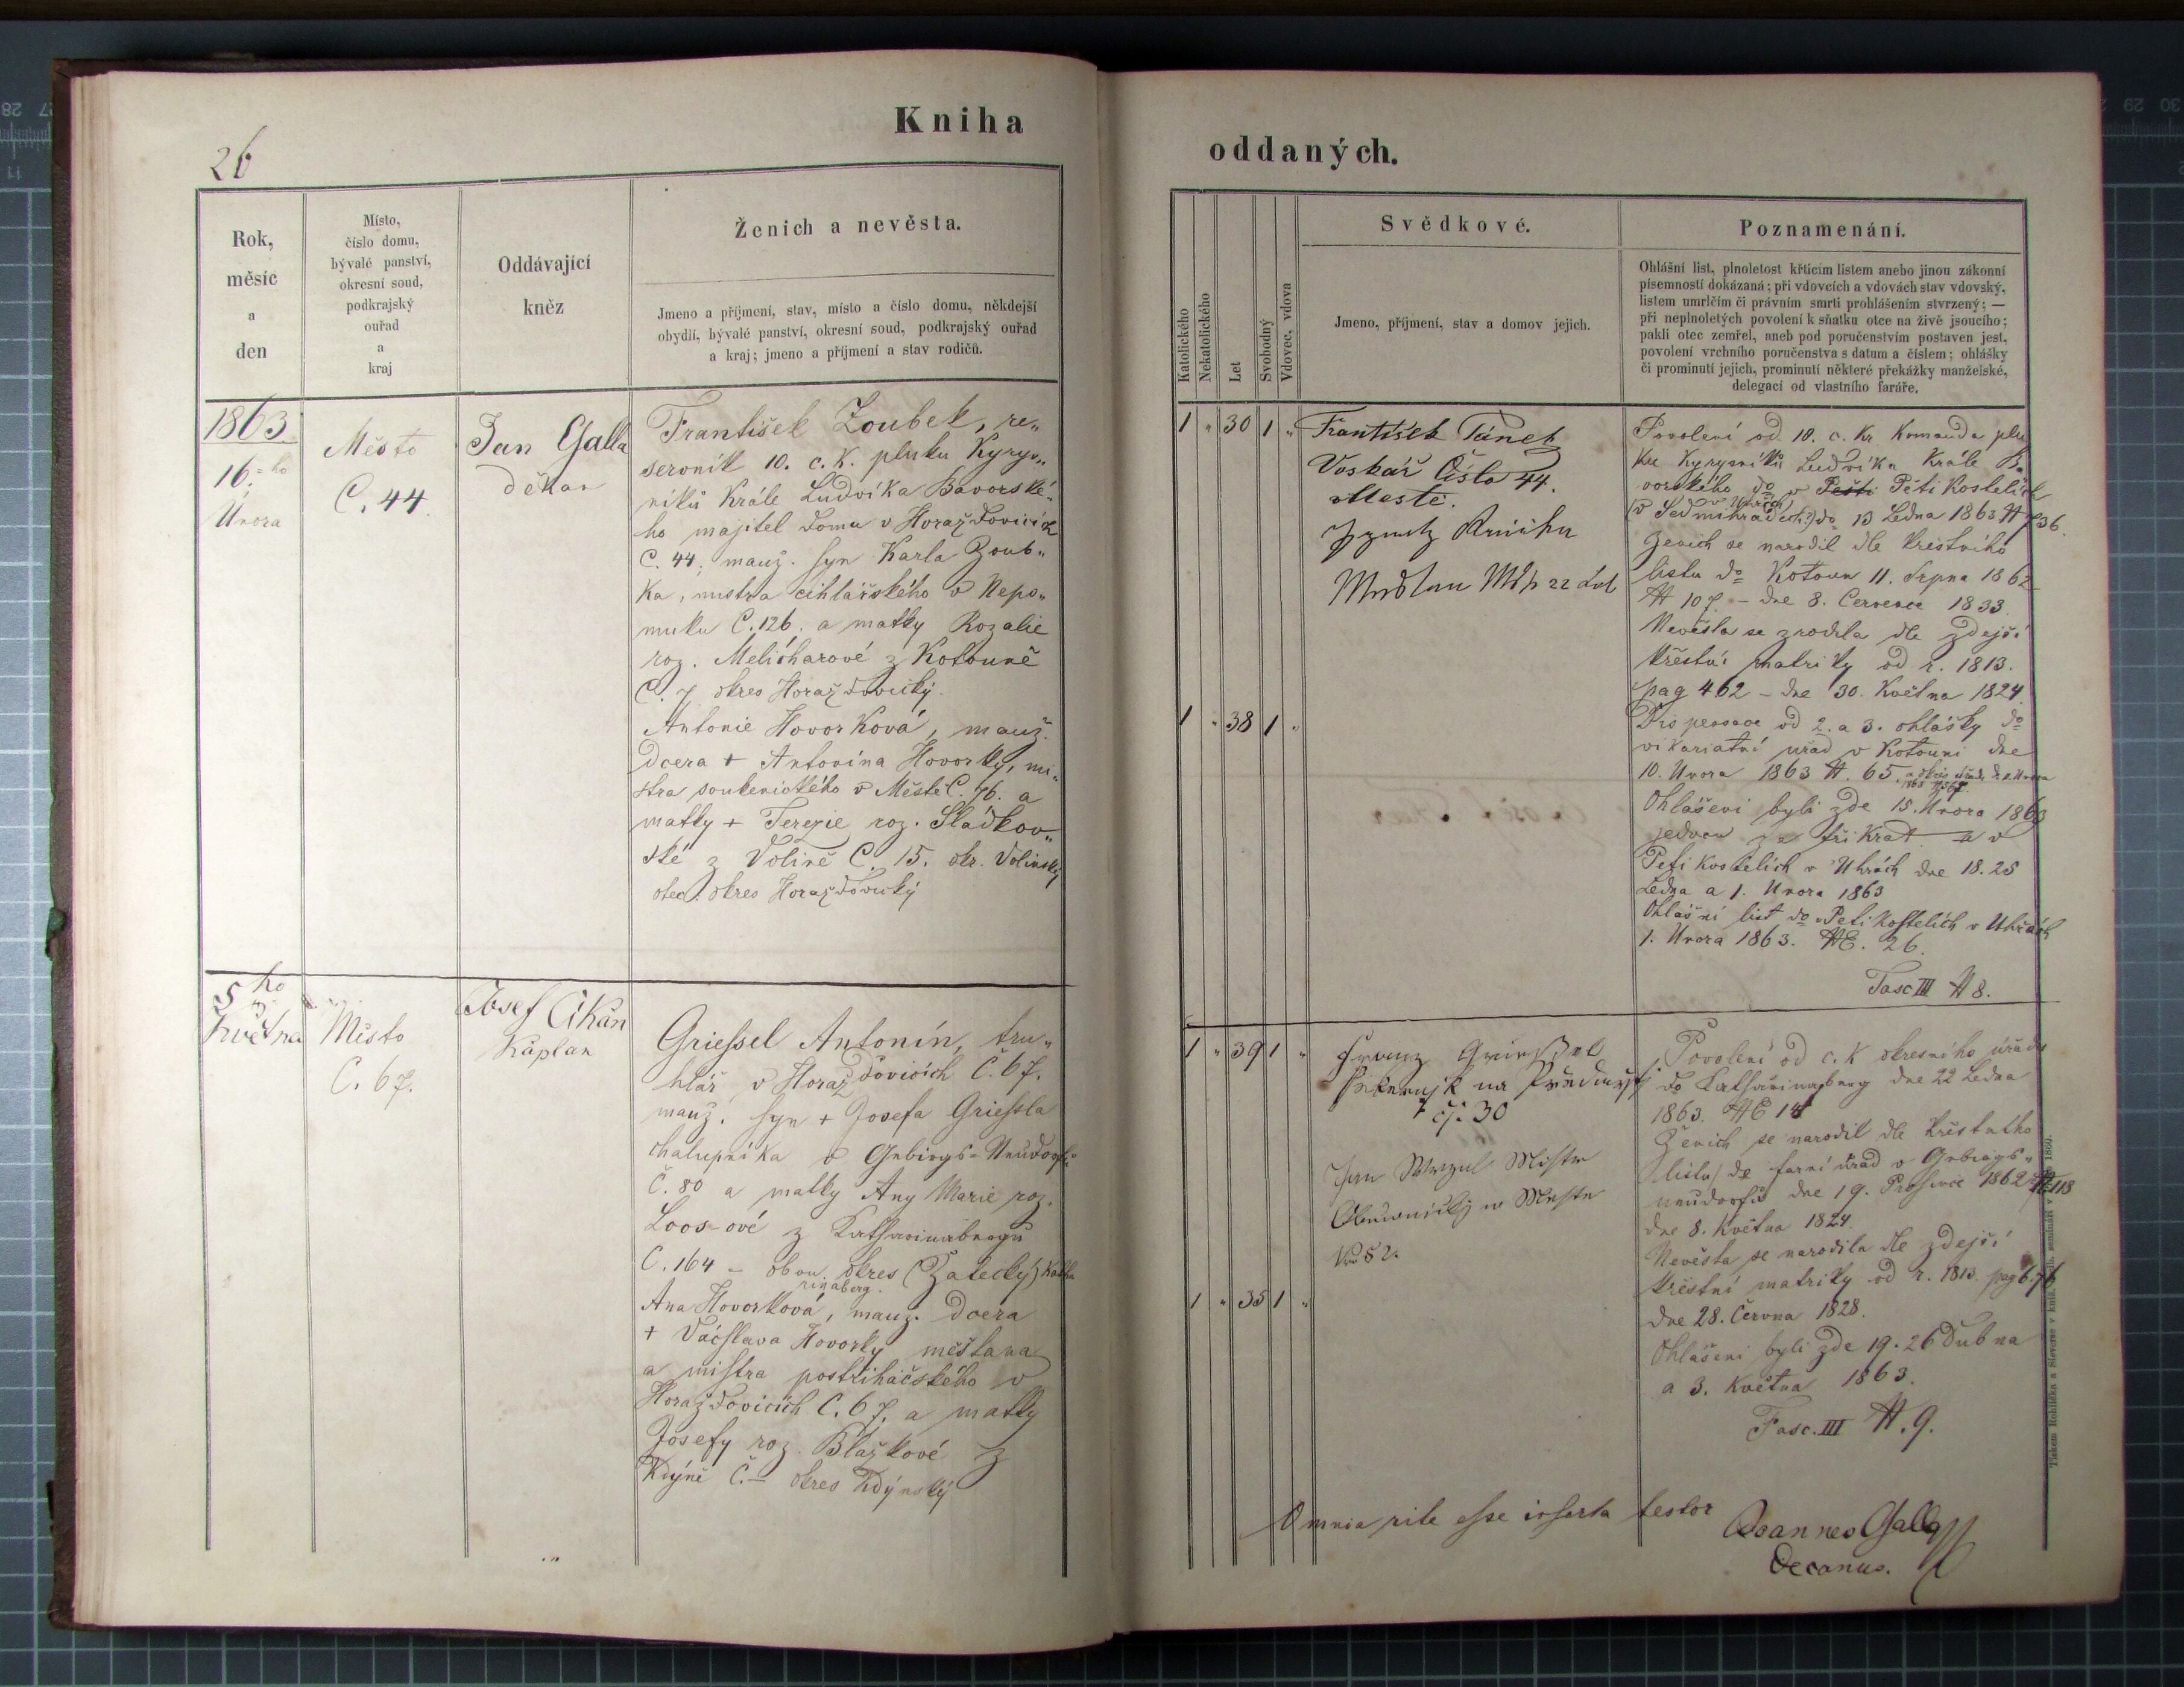 26
Kniha
Rok,
měsíc
a
den
Místo,
číslo domu,
bývalé panství,
okresní soud,
podkrajský
ouřad
a
kraj
Oddávající
kněz
Ženich a nevěsta.
Jmeno a příjmení, stav, místo a číslo domu, někdejší
obydlí, bývalé panství, okresní soud, podkrajský ouřad
a kraj; jmeno a příjmení a stav rodičů.
1863
16.ho
Února
Město
C. 44.
Jan Galla
děkan
František Zoubek, re„
servník 10. c. k. pluku Kyrys„
níků Krále Ludvíka Bavorské„
ho majitel domu v Horažďovicích
C. 44, manž. syn Karla Zoub„
ka, mistra cihlářského v Nepo„
muku C. 126. a matky Rozalie
roz. Melicharové z Kotouně
C. 7 okres Horažďovický.
Antonie Hovorková, manž.
dcera + Antonína Hovorky, mi„
stra soukenického v Městě C. 76. a
matky + Terezie roz. Sladkov„
ské z Volině C. 15. okr. Volinský
otec okres Horažďovický
5ho
Května
Město
C. 67.
Josef Cikán
Kaplan
Griessel Antonín, tru„
hlář v Horažďovicích Č. 67.
manž. syn + Josefa Griessla
chalupníka v Gebirgs-Neudorfu
Č. 80 a matky Any Marie roz.
Loos-ové z Katharinabergu
C. 164 – obou okres (Žatecký) Katha
rinaberg.
Ana Hovorková, manž. dcera
+ Váčslava Hovorky měšťana
a mistra postřihačského v
Horažďovicích C. 67. a matky
Josefy roz. Blažkové z
Kdýně Č. – okres Kdýnský
oddaných.
Katolického
Nekatolického
Let
Svobodný
Vdovec, vdova
Svědkové.
Jmeno, příjmení, stav a domov jejich.
Poznamenání.
Ohlášní list, plnoletost křticím listem anebo jinou zákonní
písemností dokázaná; při vdovcích a vdovách stav vdovský,
listem umrlčím či právním smrti prohlášením stvrzený; —
při neplnoletých povolení k sňatku otce na živě jsoucího;
pakli otec zemřel, aneb pod poručenstvím postaven jest,
povolení vrchního poručenstva s datum a číslem; ohlášky
či prominutí jejich, prominutí některé překážky manželské,
delegací od vlastního faráře.
1 „ 30 1 „
František Tánek
Voskář Čislo 44.
Meste.
1 „ 38 1 „
Povolení od 10. c. kr. Komanda plu
ku Kyrysníků Ludvíka Krále Ba
vorského do v Pešti Pěti Kostelích
v Uhřích
(v Sedmihradech?) do 13 Ledna 1863 # 736.
Ženich se narodil dle křestního
listu do Kotoun 11. Srpna 1862
# 107. – dne 8. Července 1833.
Nevěsta se zrodila dle zdejší
křestní matriky od r. 1813.
pag 462 – dne 30. Května 1824.
Dispensace od 2. a 3. ohlášky do
vikariatní uřad v Kotouni dne
10. Února 1863 #. 65.
Ohlášeni byli zde 15. Února 1863
jednou za třikrat a v
Pěti Kostelích v Uhrách dne 18. 25
Ledna a 1. Února 1863
Ohlášní list do Pěti Kostelích v Uhrách
1. Února 1863. #E. 26.
Fasc III # 8.
1 „ 39 1 „
na Předměstj
čj. 30
Jan Mistr
w Mieste
Nro 52.
1 „ 35 1 „
Povolení od c. k okresního úřadu
do Katharinaberg dne 22 Ledna
1863. #E 14
Ženich se narodil dle křestního
listu do farní úřad v Gebirgs„
neudorfu dne 19. Prosince 1862 # 118
dne 8. Května 1824.
Nevěsta se narodila dle zdejší
křestní matriky od r. 1813. pag 676
dne 28. Června 1828.
Ohlášeni byli zde 19. 26 Dubna
a 3. Května 1863.
Fasc. III #. 9.
Omnia rite esse inserta testor
Joannes Galla
Decanus.